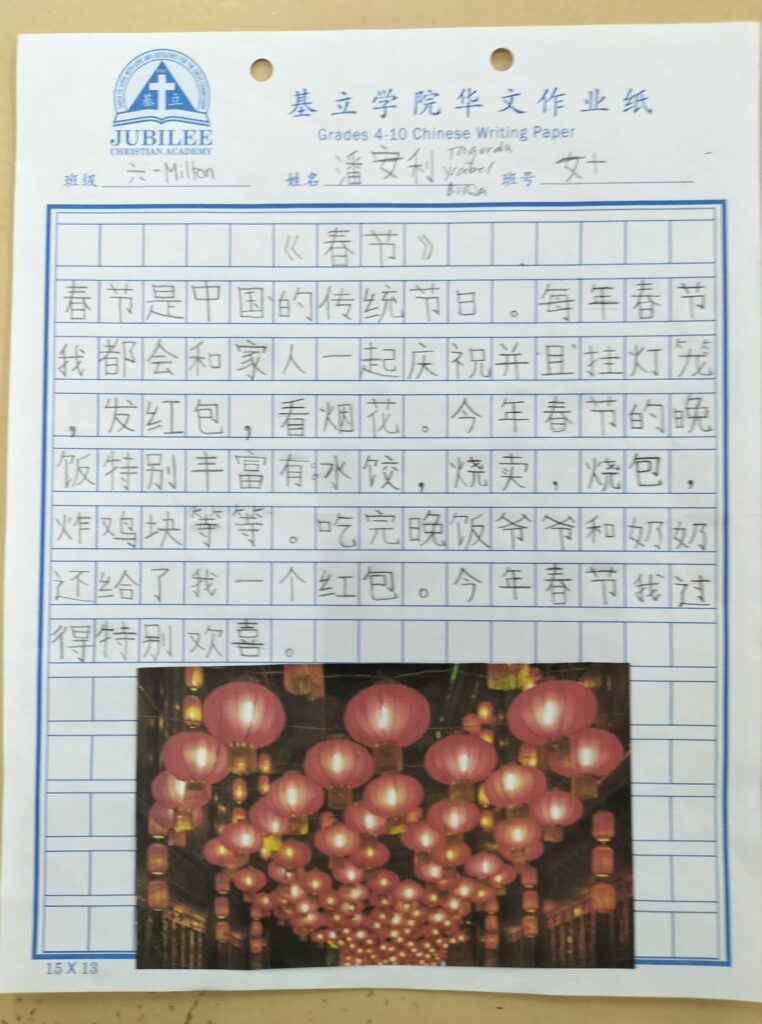 基立学院华文作业纸
Grades 4-10 Chinese Writing Paper
基立
JUBILEE
CHRISTIAN ACADEMY
班级 六-Milton 姓名 潘安利 Ysabel 班号 女十
《春节》
春节是中国的传统节日。每年春节
我都会和家人一起庆祝并且挂灯笼
，发红包，看烟花。今年春节的晚
饭特别丰富有：水饺，烧卖，烧包，
炸鸡块等等。吃完晚饭爷爷和奶奶
还给了我一个红包。今年春节我过
得特别欢喜。
15 X 13